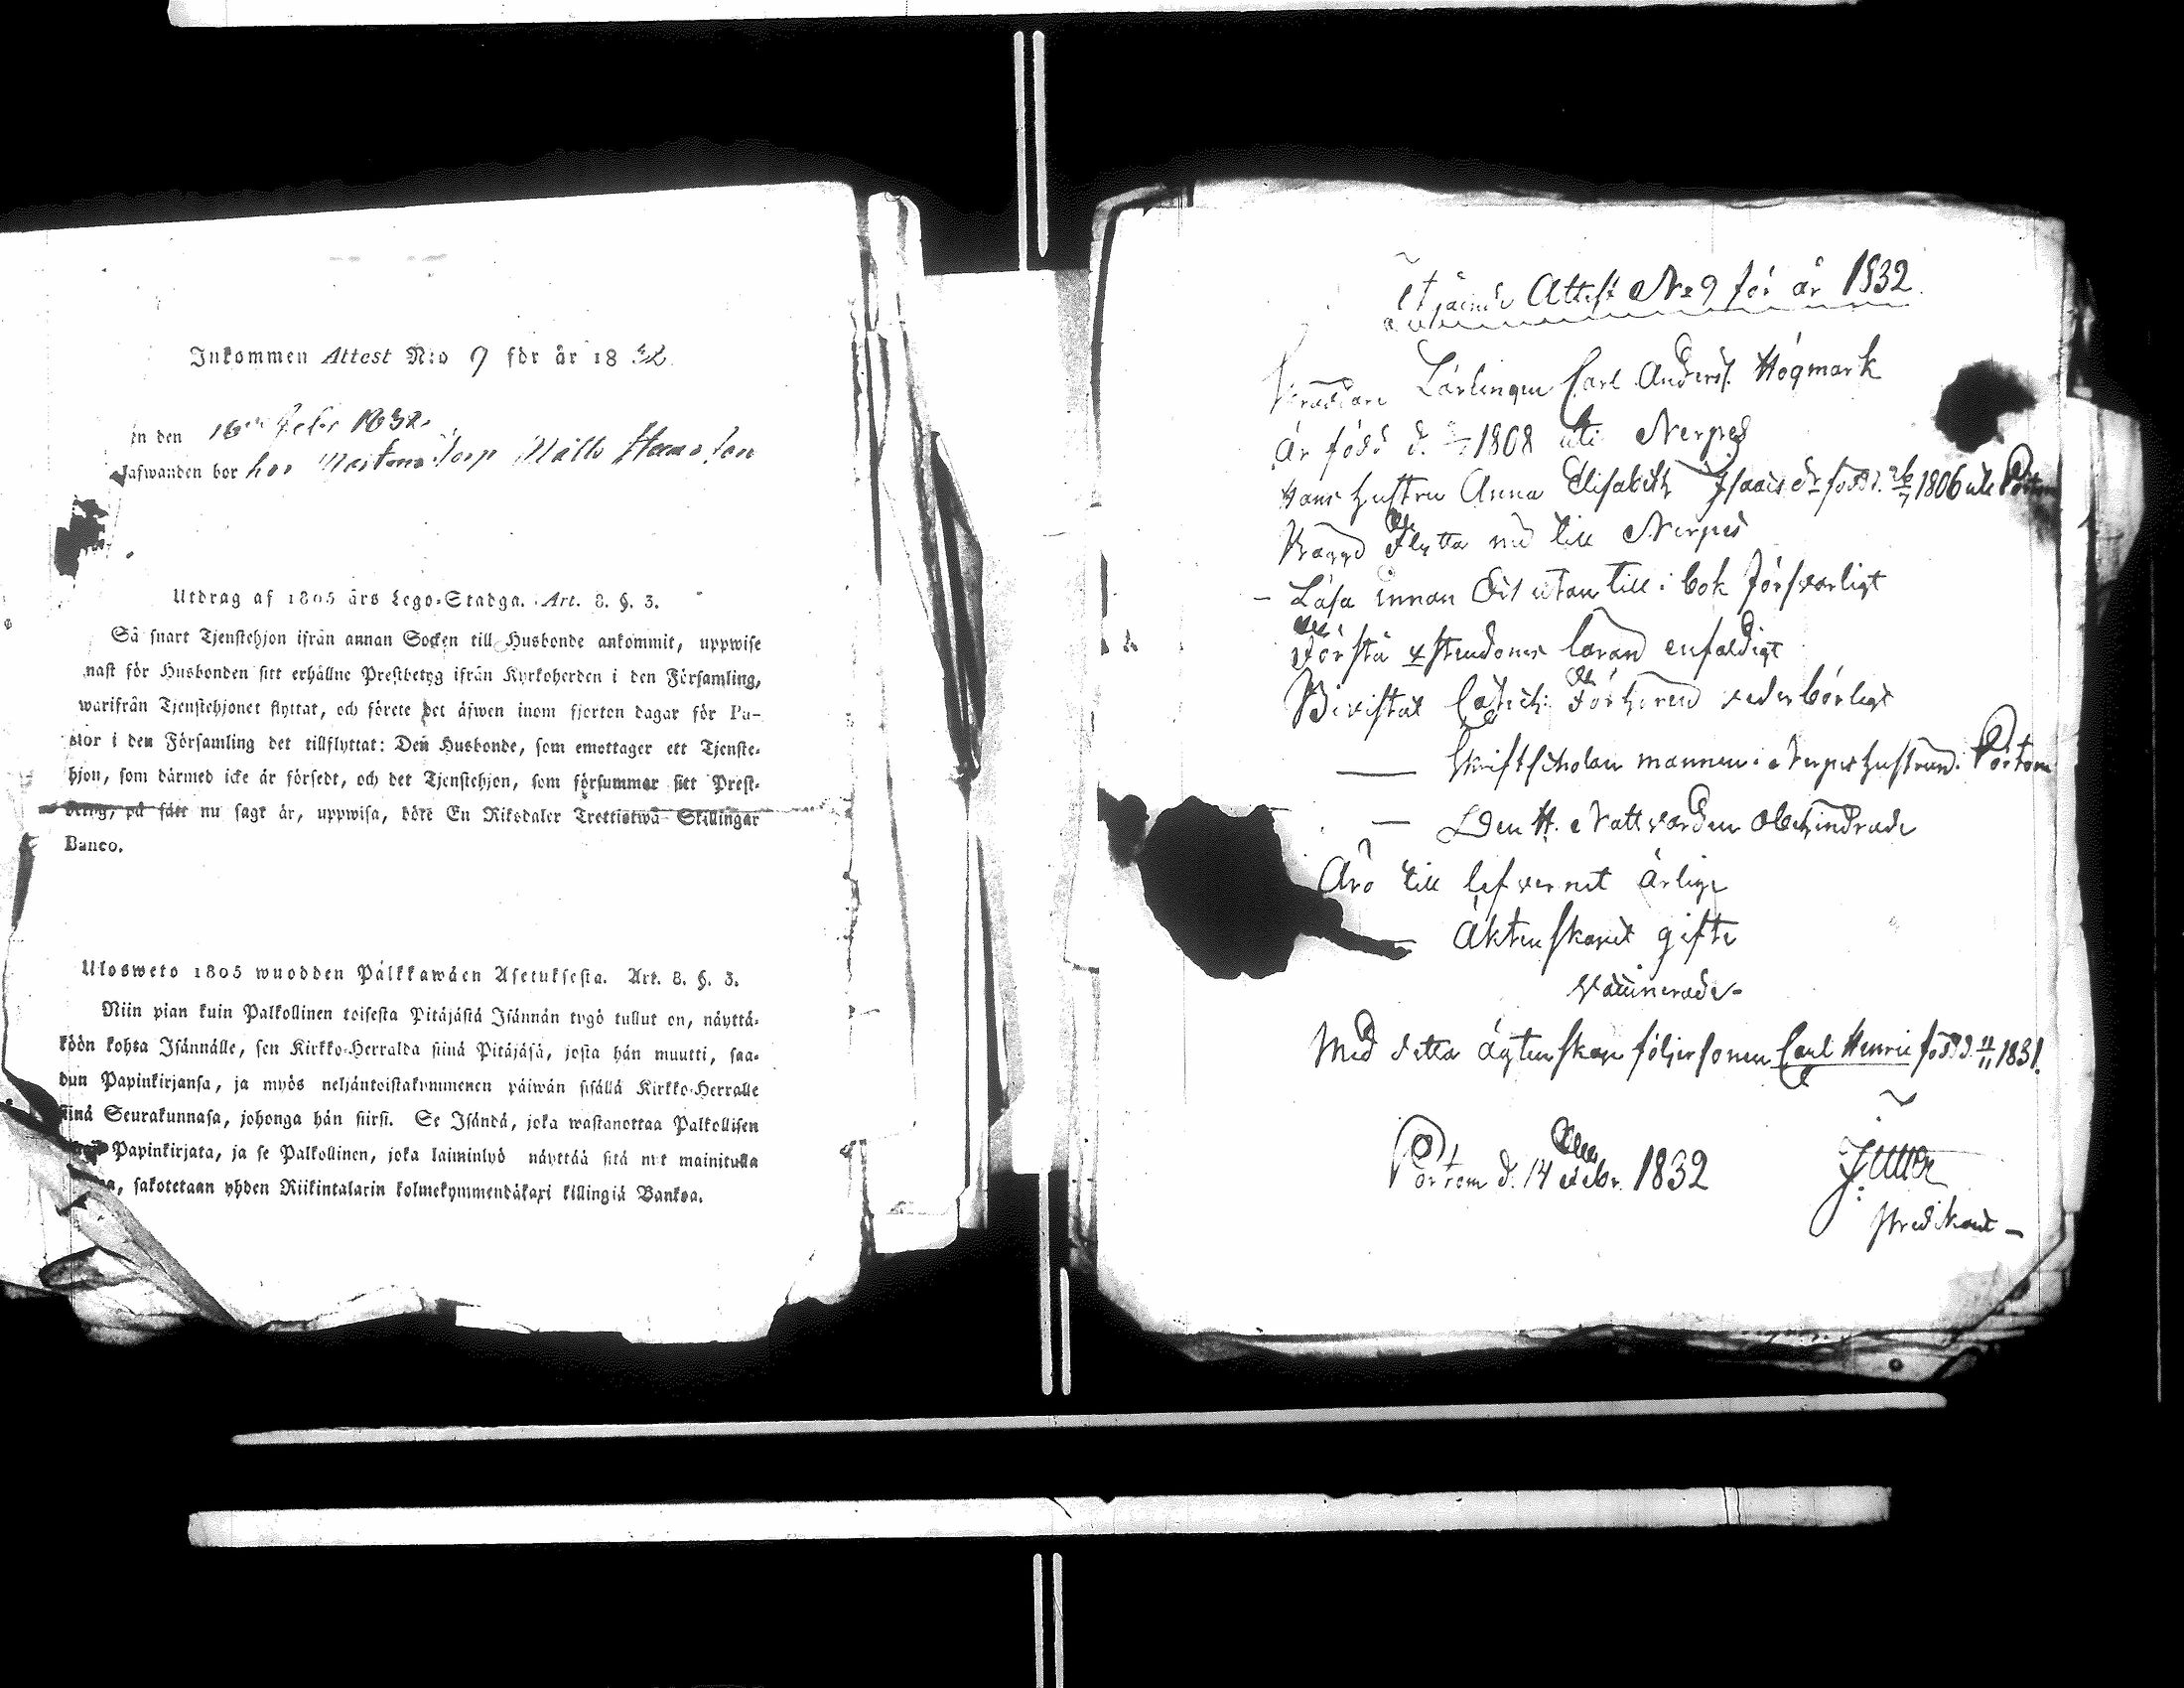 Inkommen Attest N:o 9 för år 1832
in den 16 Febr 1832
afwanden bor hos Mattls
Utdrag af 1805 års Lego-Stadga. Art. 8. §. 3.
Så snart Tjenstehjon ifrån annan Socken till Husbonde ankommit, uppwise
nast för Husbonden sitt erhållne Prestbetyg ifrån Kyrkoherden i den Församling,
warifrån Tjenstehjonet flyttat, och förete det äfwen inom fjorton dagar för Pa-
stor i den Församling det tillflyttat: Den Husbonde, som emottager ett Tjenste-
hjon, som därmed icke är försedt, och det Tjenstehjon, som försummar sitt Prest-
betyg, på sätt nu sagt är, uppwisa, böte En Riksdaler Trettiotwå Skillingar
Banco.
Ulosweto 1805 wuodden Pálkkawáen Asetuksesta. Art. 8. §. 3.
Niin pian kuin Palkollinen toisesta Pitájástá Isánnán tygö tullut on, náyttá-
köön kohta Isánnálle, sen Kirkko-Herralda siiná Pitájásá, josta hán muutti, saa-
dun Papinkirjansa, ja myös neljántoistakymmenen páiwán sisállá Kirkko-Herralle
siiná Seurakunnasa, johonga hán siirsi. Se Isándá, joka wastanottaa Palkollisen
Papinkirjata, ja se Palkollinen, joka laiminlyö náyttáá sitá nyt mainitulla
sakotetaan yhden Riikintalarin kolmekymmendákaxi killingiá Bankoa.
Attest No 9 för år 1832.
Lärlingen Carl Anders. Högmark
Är född d. 1808 uti Nerpes
Hans hustru Anna Elisabeth Isaacsdr född d. 1806 uti Pörtom
Flytta nu till Nerpes
- Läsa innan och utan till i bok försvarligt
Förstå xstendoms läran enfaldigt
Bevistat Catech: Förhören vederbörligt
— Skriftscholan mannen i Nerpes hustrun i Pörtom
— Den H. Nattvarden obehindrade
Äro till lefvernet ärlige
— Äktenskapet gifte
vaccinerade-
Med detta ägtenskap följer sonen Carl Henric född d. 11/11 1831.
Pörtom d. 14 Febr. 1832
Predikant -